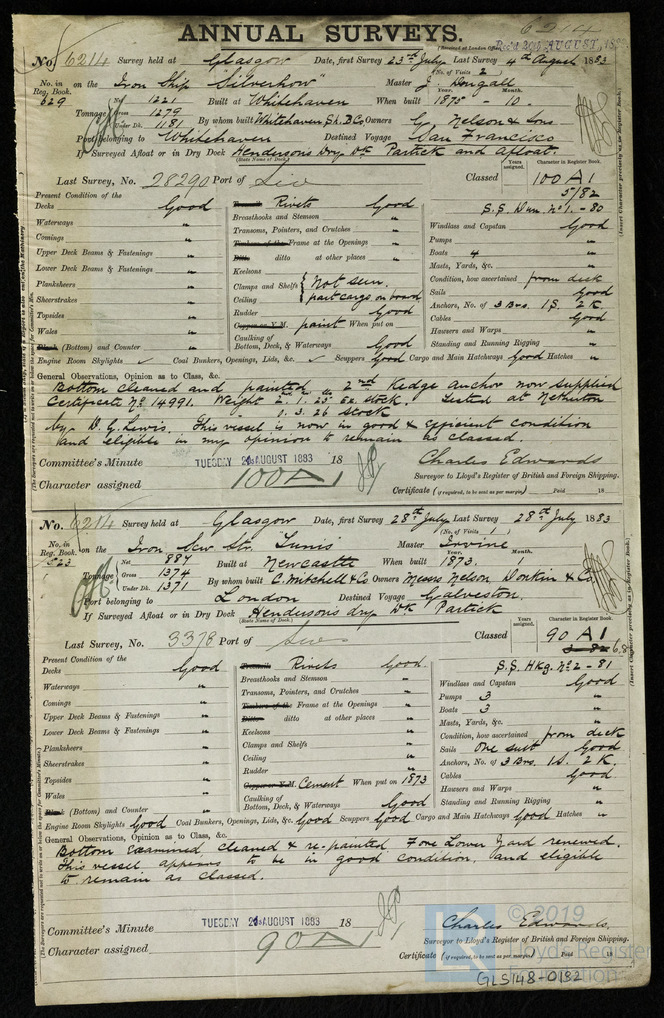 6214
ANNUAL SURVEYS.
(Received at London Office Rec'd 20th AUGUST, 188
No. 6214 Survey held at Glasgow Date, first Survey 23rd July Last Survey 4th August 1883
(No. of Visits 2)
No. in Reg. Book. on the Iron Ship "Silverhow" Master J. Dougall
629 Net 1221 Built at Whitehaven When built 1875 - 10. Year. Month.
Tonnage Gross 1279
Under Dk. 1181 By whom built Whitehaven Sh. B. Co Owners G. Nelson & Sons
Port belonging to Whitehaven Destined Voyage San Francisco
If Surveyed Afloat or in Dry Dock Hendersons Dry Dk Partick and Afloat.
(State Name of Dock.)
Last Survey, No. 28290 Port of Liv Classed Years assigned. Character in Register Book. 100 A 1
5/82
Present Condition of the S.S. Dun. No 1. - 80
Decks Good Rivets Good Windlass and Capstan Good
Waterways " Breasthooks and Stemson " Pumps "
Comings " Transoms, Pointers, and Crutches " Boats 4 "
Upper Deck Beams & Fastenings " Timbers of the Frame at the Openings " Masts, Yards, &c. "
Lower Deck Beams & Fastenings " Ditto ditto at other places " Condition, how ascertained from deck
Planksheers " Keelsons Sails Good
Sheerstrakes " Clamps and Shelfs } not seen. Anchors, No. of 3 Brs. 1 S. 2 K
Topsides " Ceiling } part cargo on board Cables Good
Wales " Rudder Good Hawsers and Warps "
Blank (Bottom) and Counter " Copper or Y.M. paint When put on Standing and Running Rigging "
Caulking of Bottom, Deck, & Waterways Good
Engine Room Skylights ✓ Coal Bunkers, Openings, Lids, &c. ✓ Scuppers Good Cargo and Main Hatchways Good Hatches "
General Observations, Opinion as to Class, &c.
Bottom cleaned and painted. 2nd Kedge anchor now supplied
Certificate No 14991. Weight 2. 1. 23 Ex. stock. Tested at Netherton
1. 3. 26 stock
by D. G. Lewis. This vessel is now in good & efficient condition
and eligible in my opinion to remain as classed.
Committee's Minute TUESDAY 21 AUGUST 1883 18 Charles Edwards
Surveyor to Lloyd's Register of British and Foreign Shipping.
Character assigned 100 A 1
Certificate (if required, to be sent as per margin) Paid 18
No. 6214 Survey held at Glasgow Date, first Survey 28th July Last Survey 28th July 1883
(No. of Visits 1)
No. in Reg. Book. on the Iron Scw Str. Tunis Master Irvine
Net 887 Built at Newcastle When built 1873. 1 Year. Month.
Tonnage Gross 1374
Under Dk. 1371 By whom built C. Mitchell & Co Owners Messrs Nelson Donkin & Co,
Port belonging to London Destined Voyage Galveston.
If Surveyed Afloat or in Dry Dock Hendersons dry Dk Partick
(State Name of Dock.)
Last Survey, No. 3378 Port of Classed Years assigned. Character in Register Book. 90 A 1
Present Condition of the S.S. Hkg. No 2 - 81
Decks Good Rivets Good Windlass and Capstan Good
Waterways " Breasthooks and Stemson " Pumps 3 "
Comings " Transoms, Pointers, and Crutches " Boats 3 "
Upper Deck Beams & Fastenings " Timbers of the Frame at the Openings " Masts, Yards, &c. "
Lower Deck Beams & Fastenings " Ditto ditto at other places " Condition, how ascertained from deck
Planksheers " Keelsons " Sails One suit Good
Sheerstrakes " Clamps and Shelfs " Anchors, No. of 3 Brs. 1 S. 2 K.
Topsides " Ceiling " Cables Good
Wales " Rudder " Hawsers and Warps "
Blank (Bottom) and Counter " Copper or Y.M. Cement When put on 1873 Standing and Running Rigging "
Caulking of Bottom, Deck, & Waterways Good
Engine Room Skylights Good Coal Bunkers, Openings, Lids, &c. Good Scuppers Good Cargo and Main Hatchways Good Hatches "
General Observations, Opinion as to Class, &c.
Bottom Examined cleaned & re-painted Fore Lower Yard renewed.
This vessel appears to be in good condition, and eligible
to remain as classed.
Committee's Minute TUESDAY 21 AUGUST 1883 18 Charles Edwards,
Surveyor to Lloyd's Register of British and Foreign Shipping.
Character assigned 90 A 1
Certificate (if required, to be sent as per margin) Paid 18
© 2019
Lloyd's Register
Foundation
GLS148-0182